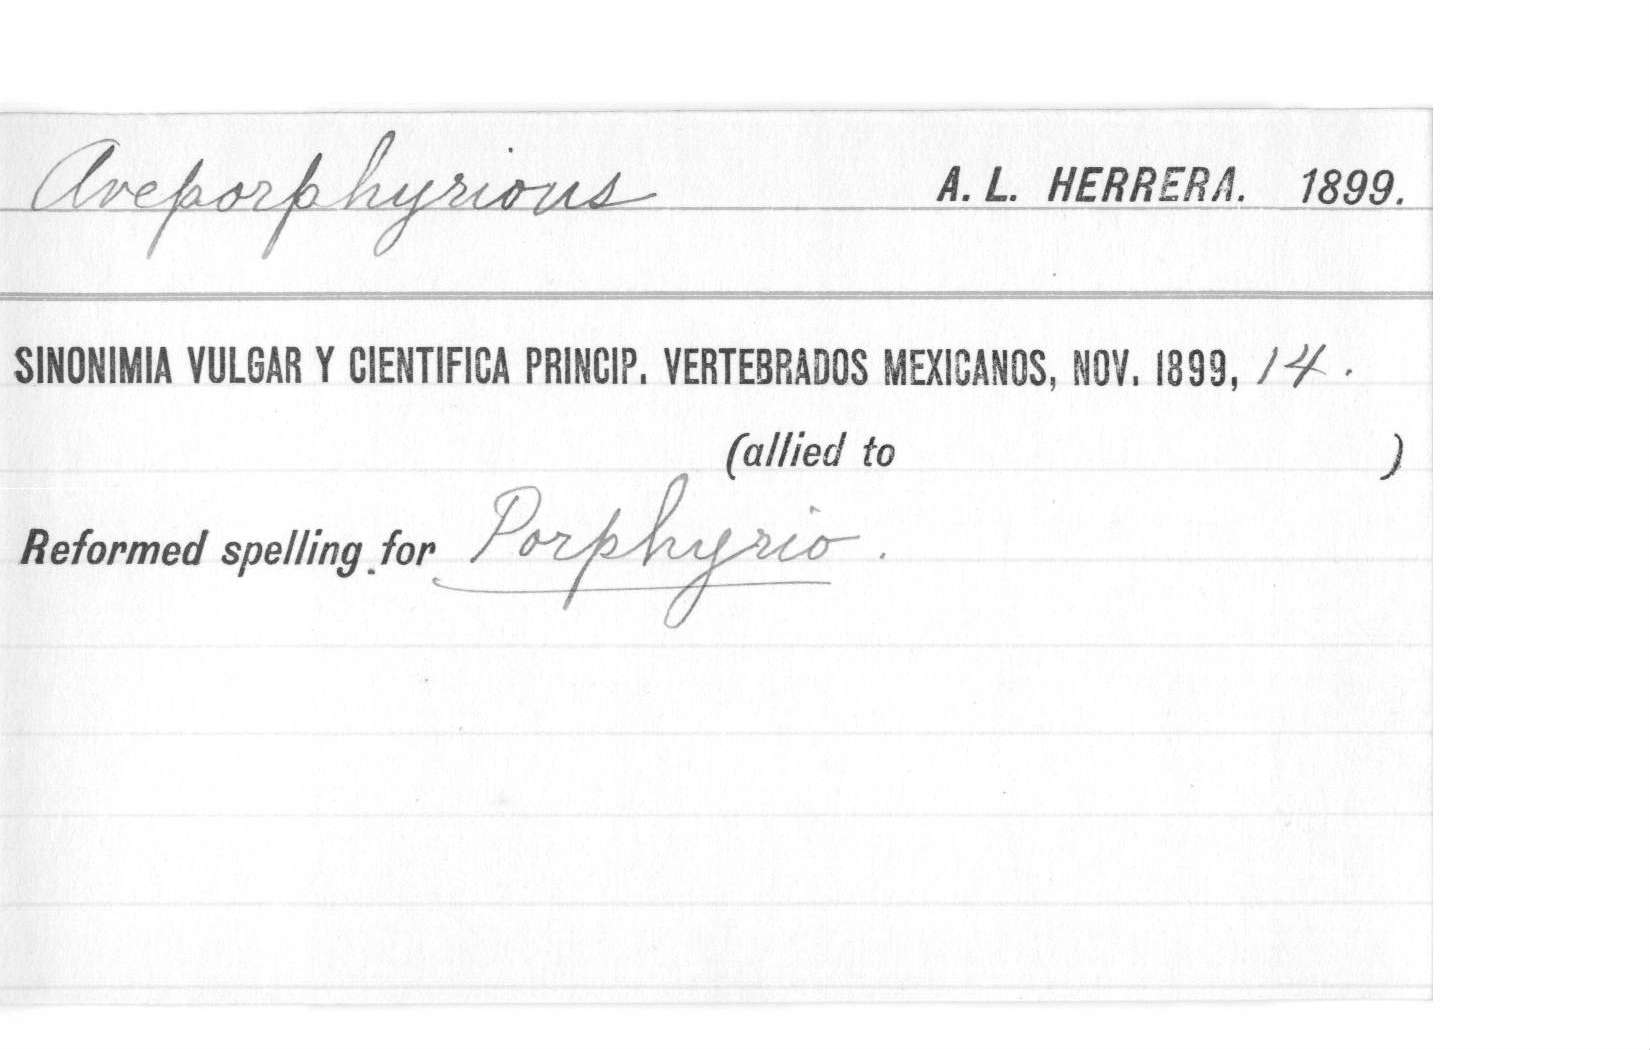 Aveporphyrious A. L. HERRERA. 1899.
SINONIMIA VULGAR Y CIENTIFICA PRINCIP. VERTEBRADOS MEXICANOS, NOV. 1899, 14.
(allied to )
Reformed spelling for Porphyrio.